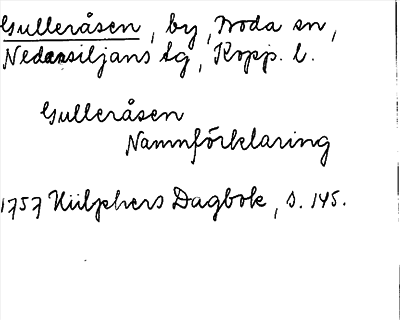 Gulleråsen, by, Boda sn,
Nedansiljans tg, Kopp. l.
Gulleråsen
Namnförklaring
1757 Hülphers Dagbok, s. 145.